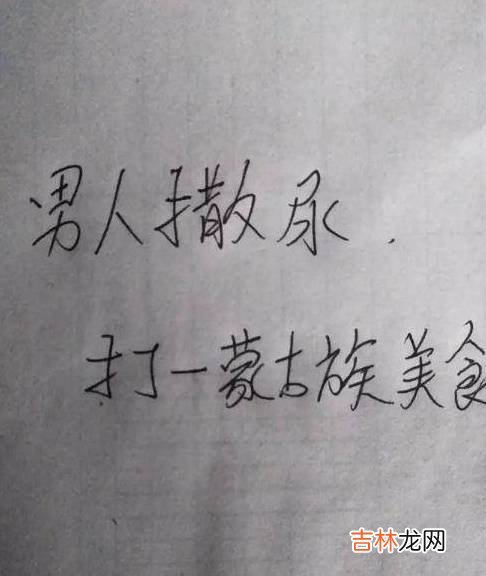 男人撒尿.
打一蒙古族美食
吉林龙网